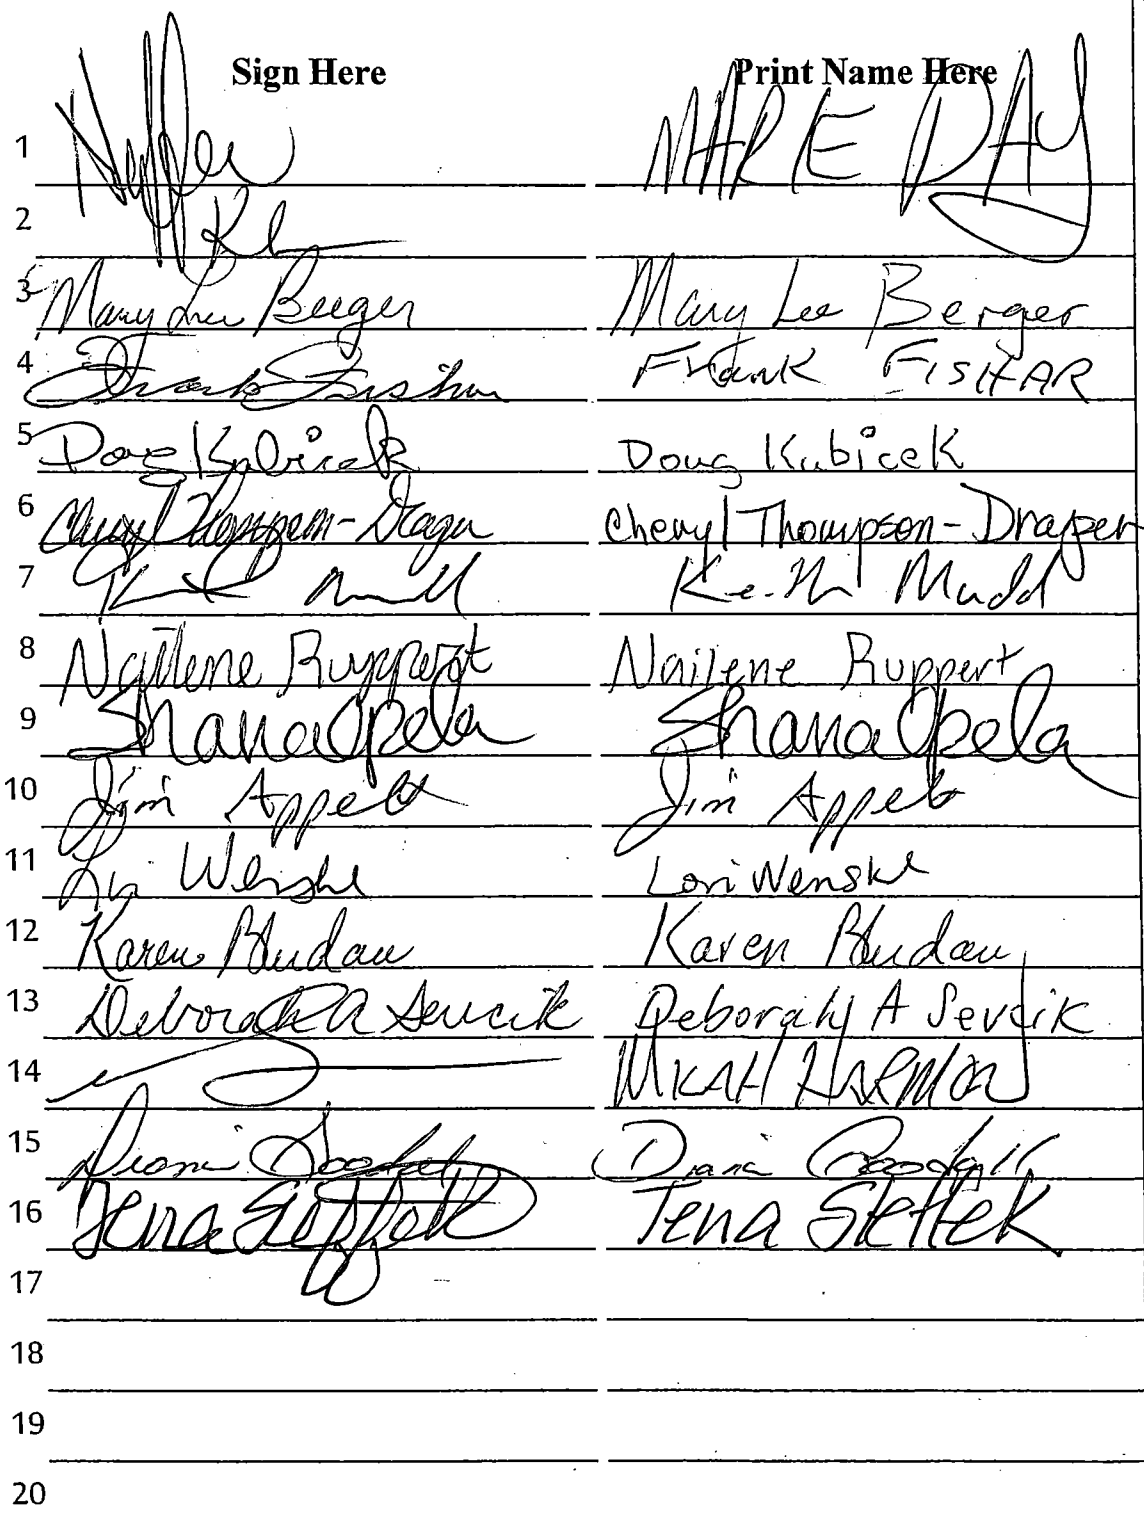 Sign Here Print Name Here
1 MARIE DAY
2
3 Mary Lee Berger Mary Lee Berger
4 Frank Fishar Frank FISHAR
5 Doug Kubicek Doug Kubicek
6 Cheryl Thompson-Draper Cheryl Thompson-Draper
7 Keith Mudd
8 Nailene Ruppert Nailene Ruppert
9 Shana Opela Shana Opela
10 Jim Appelt Jim Appelt
11 Lori Wenske Lori Wenske
12 Karen Bludau Karen Bludau
13 Deborah A Sevcik Deborah A Sevcik
14 MICAH HARMON
15 Diana
16 Tena Steffek Tena Steffek
17
18
19
20